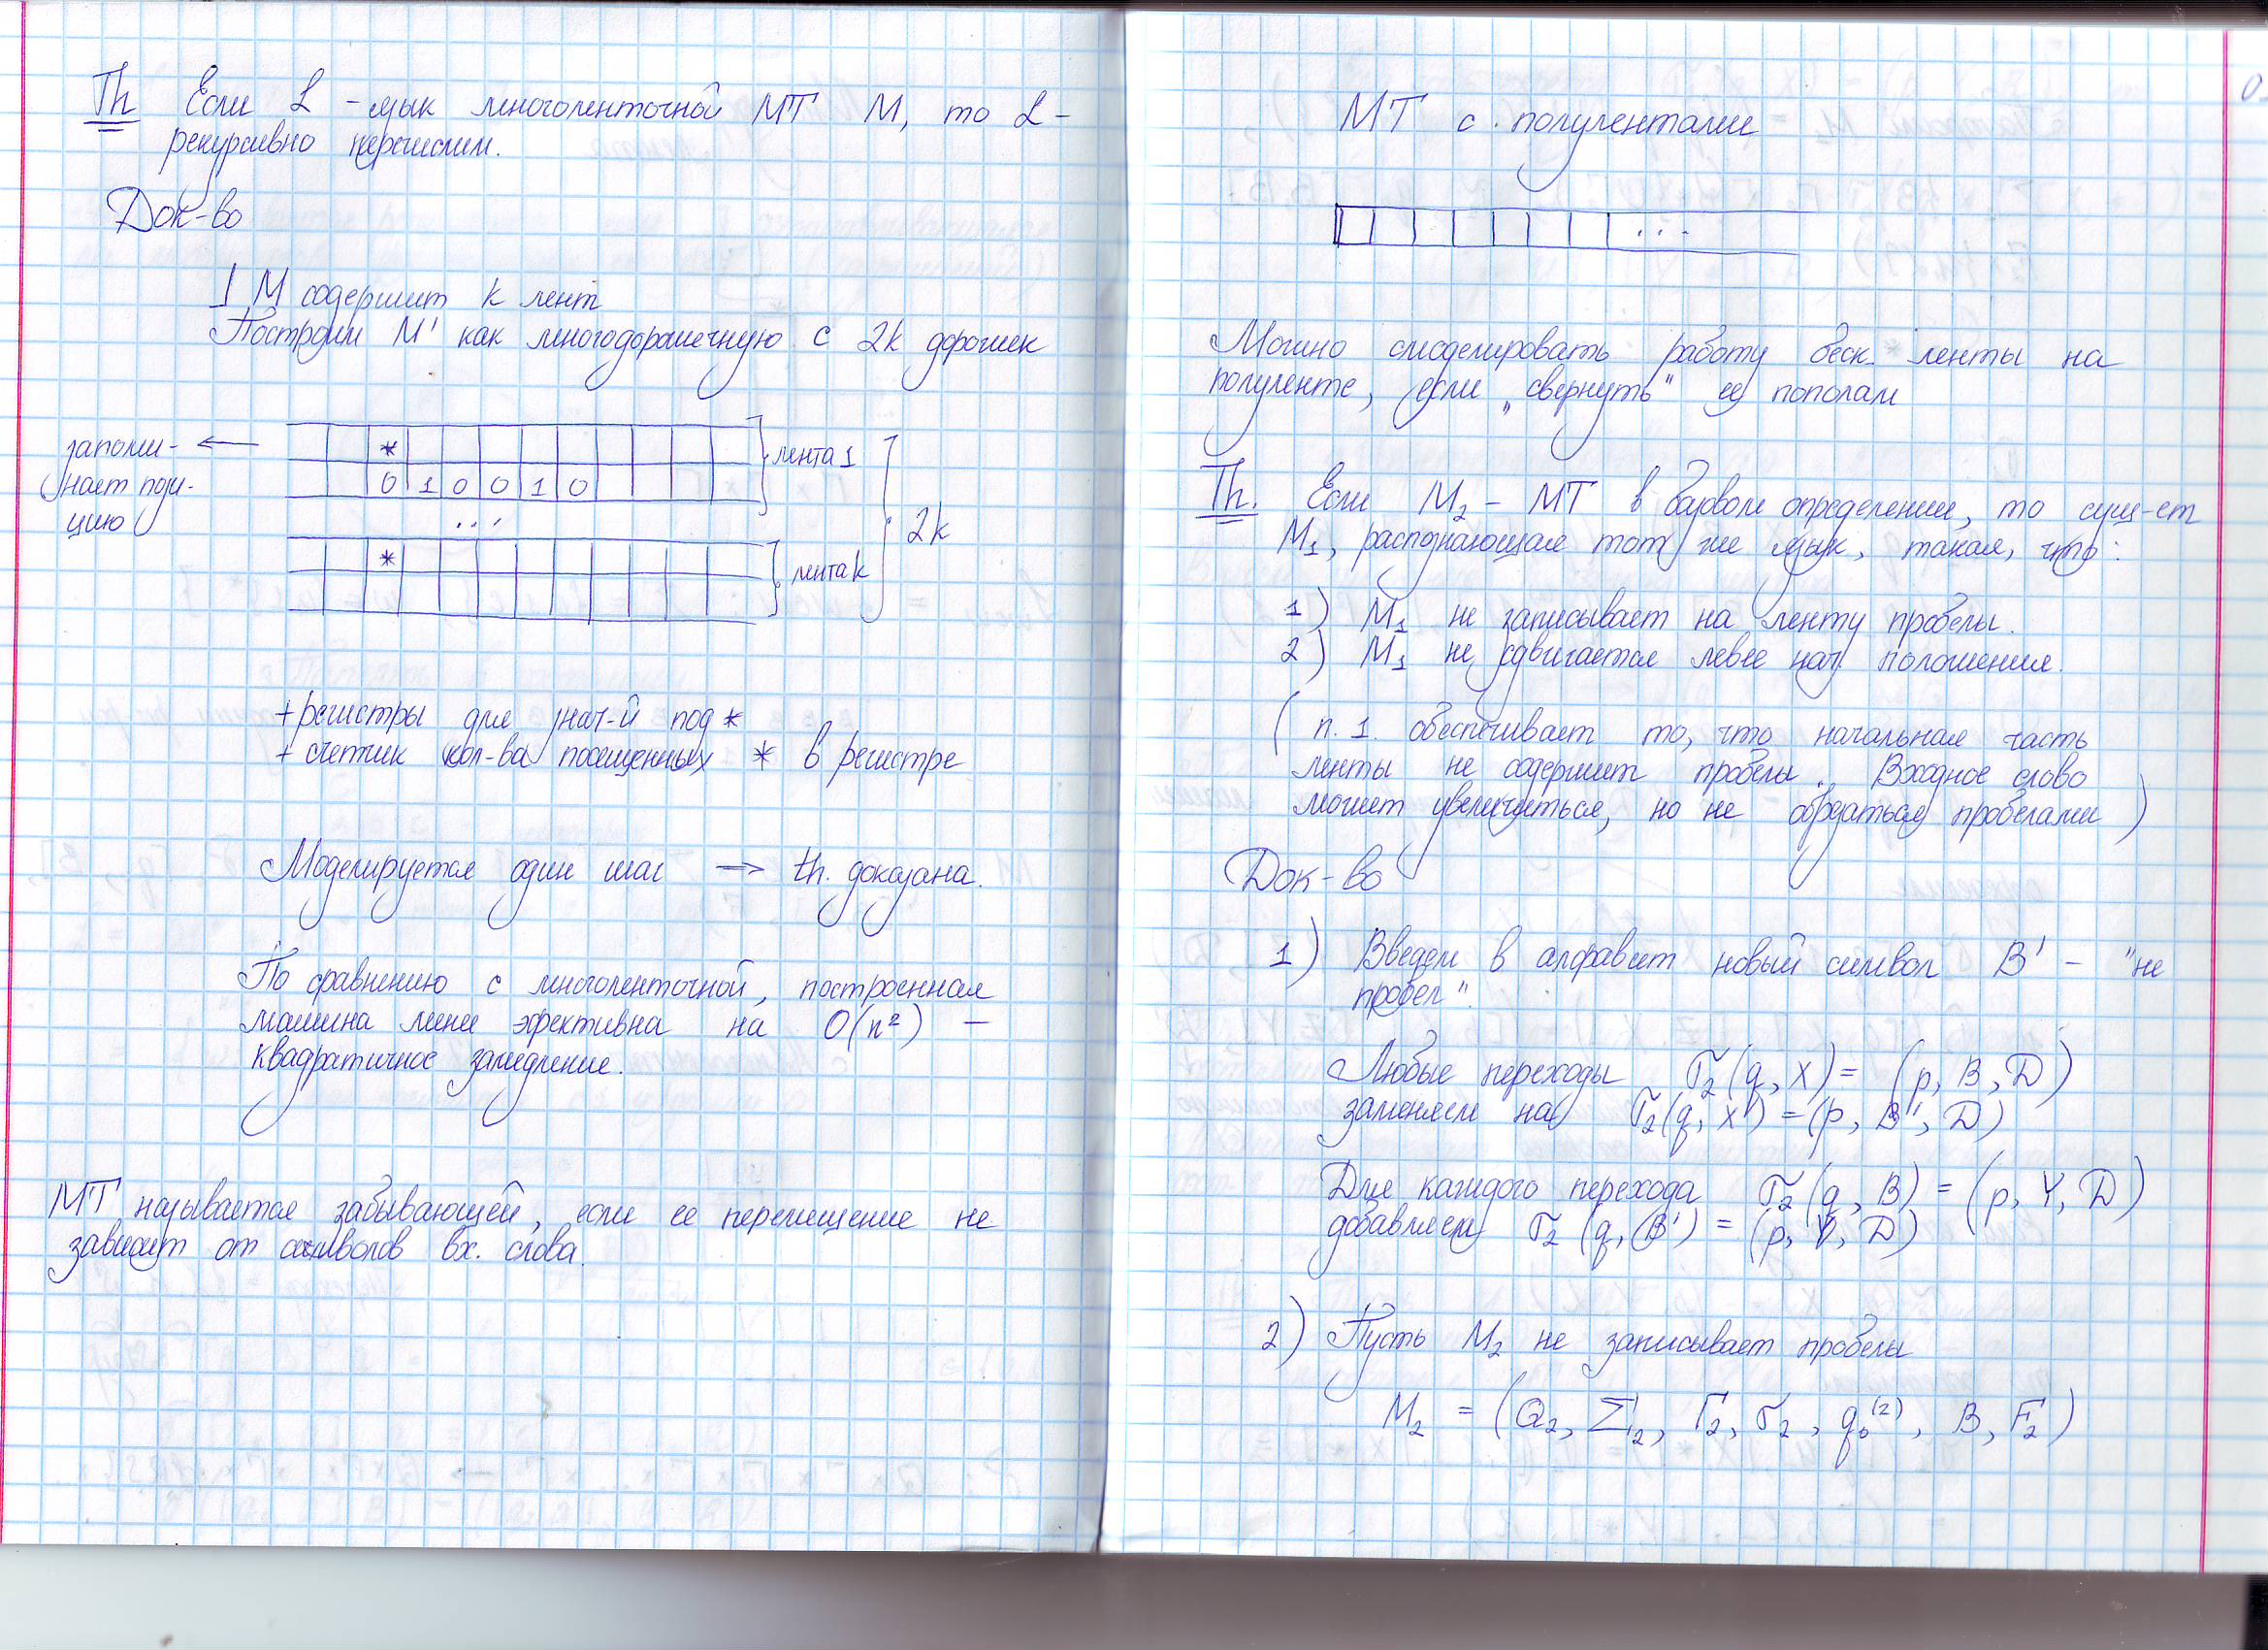 Th Если L - язык многоленточной МТ M, то L -
рекурсивно перечислим.
Док-во
] M содержит k лент
Построим M' как многодорожечную с 2k дорожек
запоми-
нает пози-
цию
*
0 1 0 0 1 0
лента 1
...
*
лента k
2k
+ регистры для знач-й под *
+ счетчик кол-ва посещенных * в регистре
Моделируется один шаг → th. доказана.
По сравнению с многоленточной, построенная
машина мене эфективна на O(n²) –
квадратичное замедление.
МТ называется забывающей, если ее перемещение не
зависит от символов вх. слова.
МТ с полулентами
...
Можно смоделировать работу беск. ленты на
полуленте, если „свернуть" ее пополам
Th. Если M₂ – МТ в базвом определении, то сущ-ет
M₁, распознающая тот же язык, такая, что:
1) M₁ не записывает на ленту пробелы.
2) M₁ не сдвигается левее нач. положения.
( п. 1. обеспечивает то, что начальная часть
ленты не содержит пробелы. Входное слово
может увеличиться, но не обрезаться пробелами )
Док-во
1) Введем в алфавит новый символ B' – "не
пробел".
Любые переходы δ₂(q, X) = (p, B, D)
заменяем на δ₂(q, X) = (p, B', D)
Для каждого перехода δ₂(q, B) = (p, Y, D)
добавляем δ₂(q, B') = (p, Y, D)
2) Пусть M₂ не записывает пробелы
M₂ = (Q₂, Σ₂, Γ₂, δ₂, q₀⁽²⁾, B, F₂)